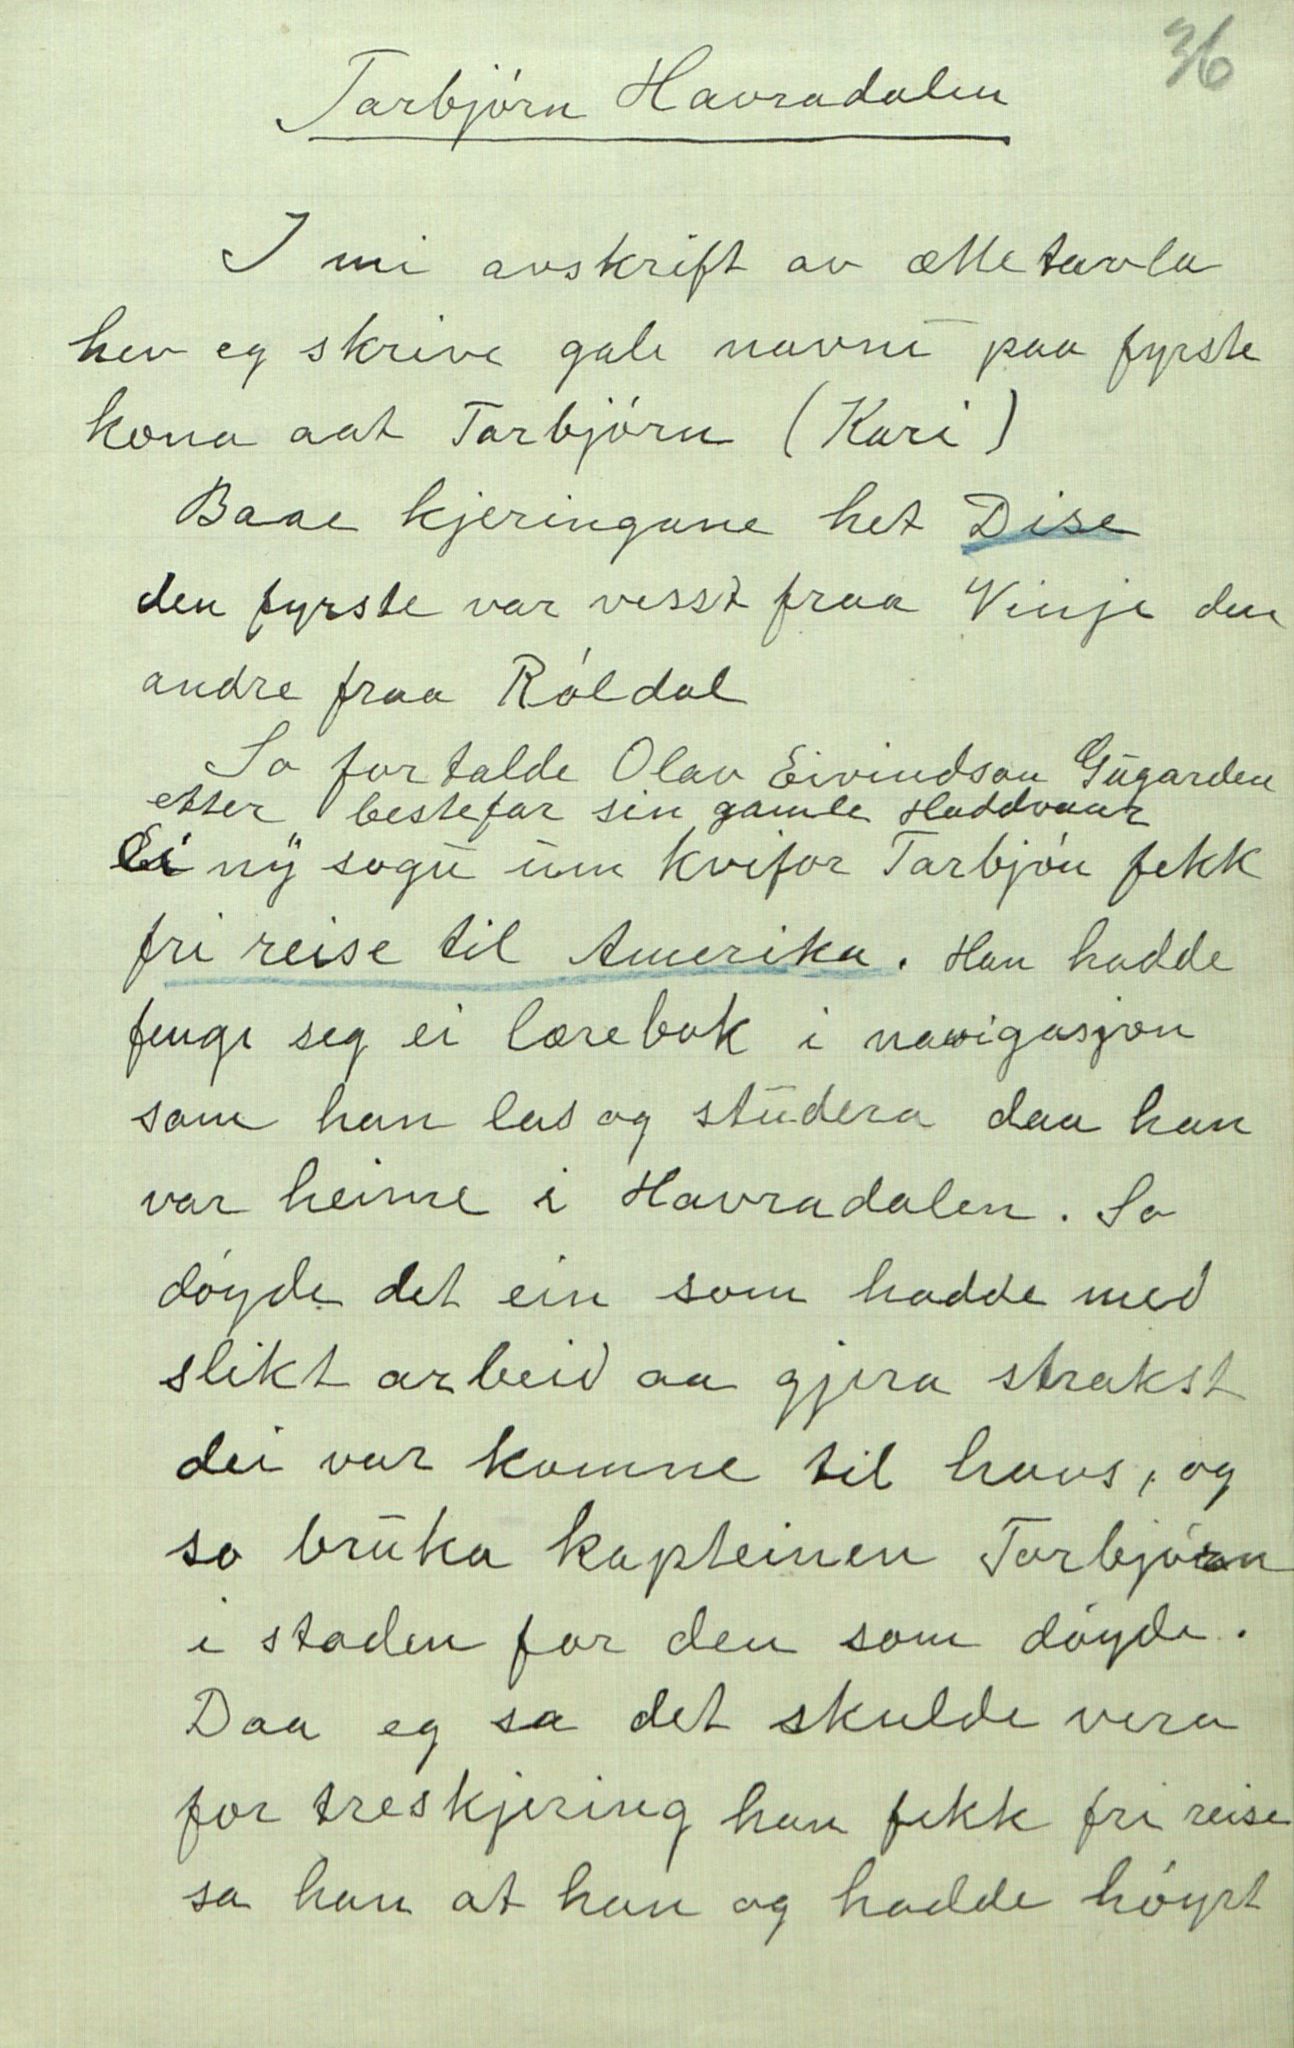 36
Tarbjórn Havradalen
I mi avskrift av ættetavla
hev eg skrive gale navni paa fyrste
kona aat Tarbjórn (Kari)
Baae kjeringane het Dise
den fyrste var visst fraa Vinje den
andre fraa Róldal
So fortalde Olav Eivindson Gúgarden
etter bestefar sin gamle Haddvaar
Ei ny sogu um kvifor Tarbjón fekk
fri reise til Amerika. Han hadde
fengi seg ei lærebok i navigasjon
som han las og studera daa han
var heime i Havradalen. So
dóyde det ein som hadde med
slikt arbeid aa gjera strakst
dei var komne til havs, og
so bruka kapteinen Tarbjórn
i staden for den som dóyde.
Daa eg sa det skulde vera
for treskjering han fekk fri reise
sa han at han og hadde hóyrt